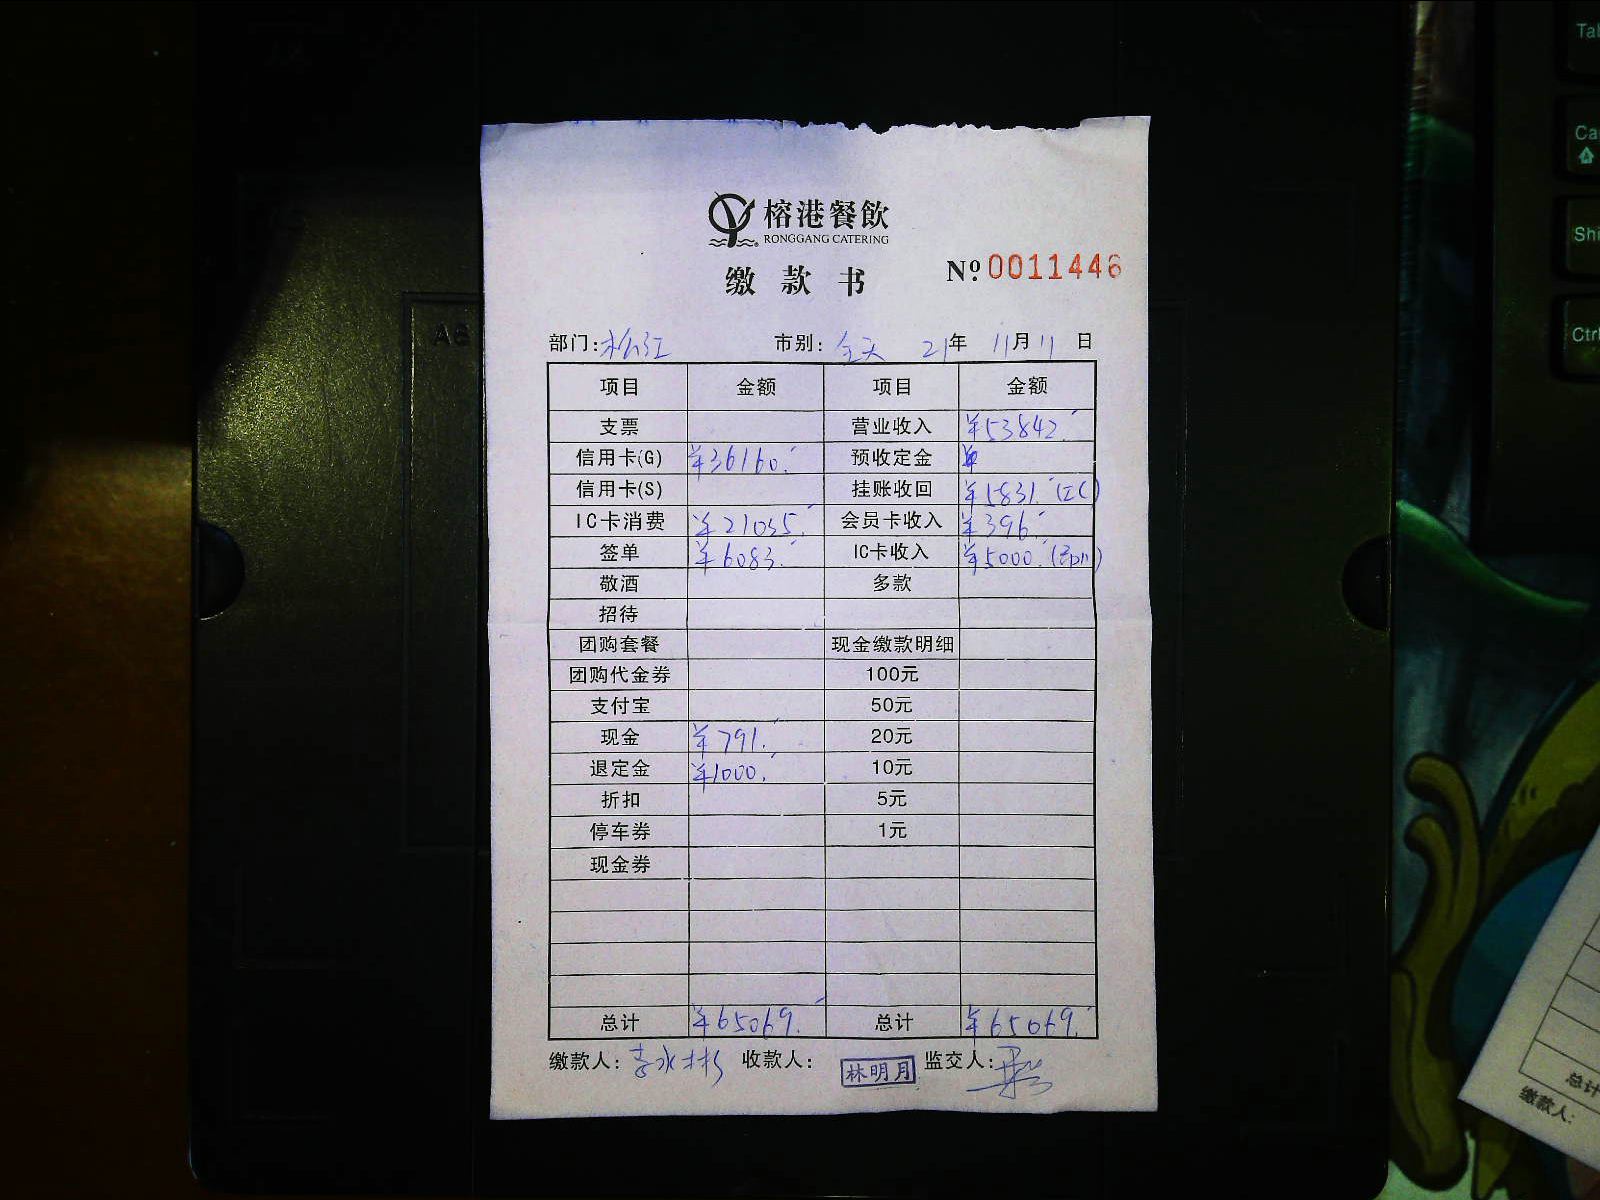 榕港餐飲
RONGGANG CATERING
缴款书 Nº 0011446
部门: 松江 市别: 全天 21年 11月 11日
项目 金额 项目 金额
支票 营业收入 ¥53842.
信用卡(G) ¥36160. 预收定金 ¥
信用卡(S) 挂账收回 ¥5831. (IC)
IC卡消费 ¥21035. 会员卡收入 ¥396.
签单 ¥6083. IC卡收入 ¥5000.
敬酒 多款
招待
团购套餐 现金缴款明细
团购代金券 100元
支付宝 50元
现金 ¥791. 20元
退定金 ¥1000. 10元
折扣 5元
停车券 1元
现金券
总计 ¥65069. 总计 ¥65069.
缴款人: 李冰彬 收款人: 林明月 监交人:
A6
Tab
Ca
Shi
Ctrl
总计
缴款人: